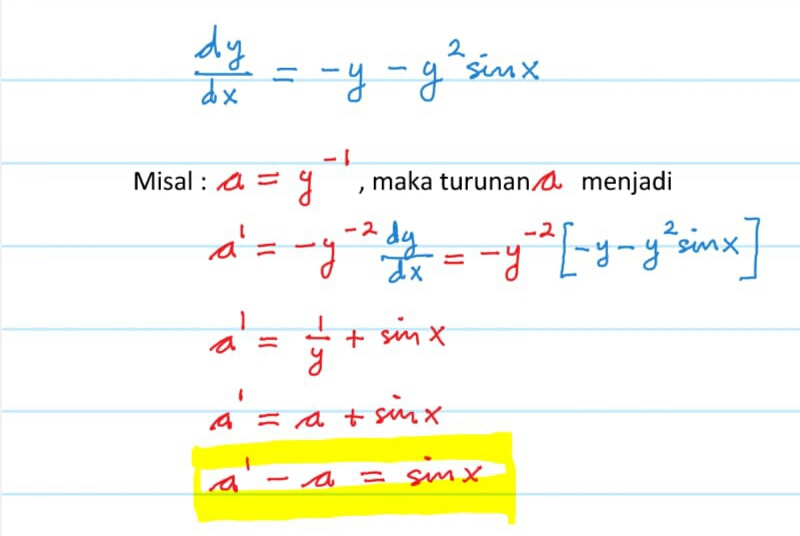 dy/dx = -y - y² sin x
Misal : a = y⁻¹ , maka turunan a menjadi
a' = -y⁻² dy/dx = -y⁻² [-y - y² sin x]
a' = 1/y + sin x
a' = a + sin x
a' - a = sin x